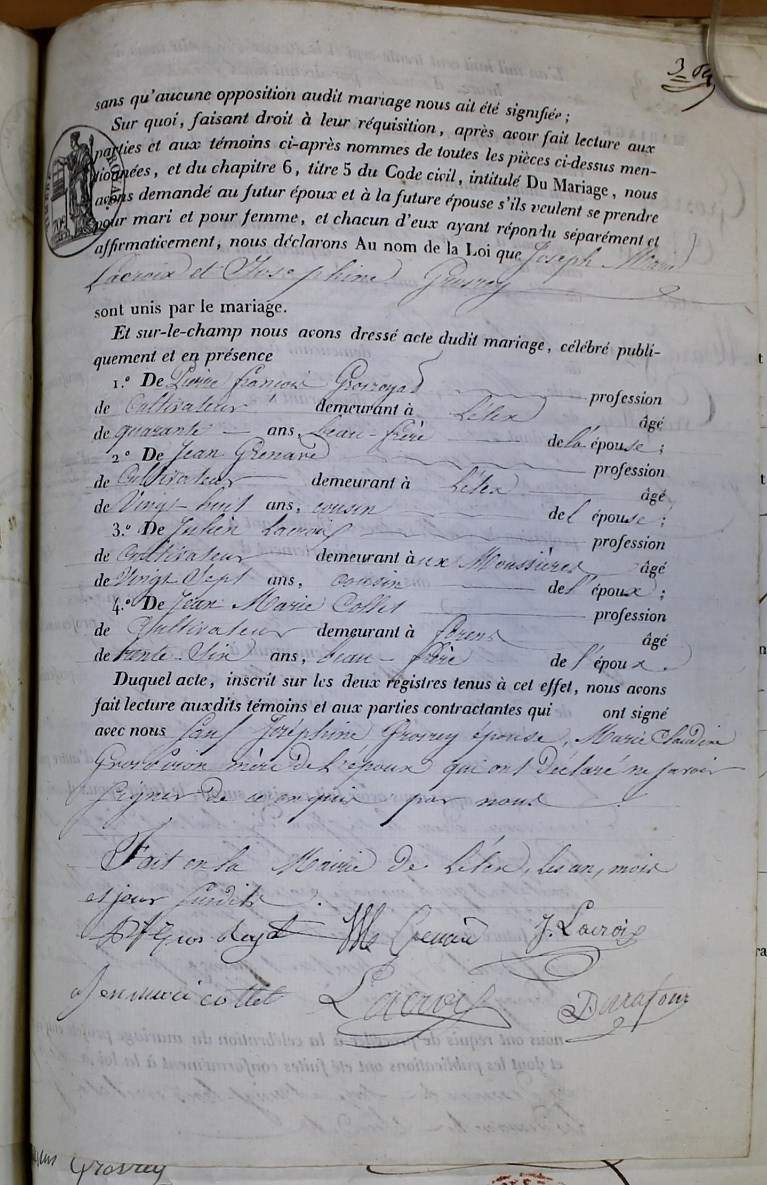 sans qu'aucune opposition audit mariage nous ait été signifiée ;
Sur quoi, faisant droit à leur réquisition, après avoir fait lecture aux
parties et aux témoins ci-après nommes de toutes les pièces ci-dessus men-
tionnées, et du chapitre 6, titre 5 du Code civil, intitulé Du Mariage, nous
avons demandé au futur époux et à la future épouse s'ils veulent se prendre
pour mari et pour femme, et chacun d'eux ayant répondu séparément et
affirmativement, nous déclarons Au nom de la Loi que Joseph Marie
Lacroix et Josephine Grosrey
sont unis par le mariage.
Et sur-le-champ nous avons dressé acte dudit mariage, célébré publi-
quement et en présence
1.° De Pierre françois Grosroyat profession
de Cultivateur demeurant à Lélex âgé
de quarante ans, beau-frère de la épouse ;
2° De Jean Grenard profession
de Cultivateur demeurant à Lélex âgé
de Vingt-huit ans, cousin de l épouse ;
3.° De Julien Lacroix profession
de Cultivateur demeurant à ux Moussières âgé
de Vingt Sept ans, cousin de l'époux ;
4.° De Jean Marie Collet profession
de Cultivateur demeurant à forens âgé
de trente-Six ans, beau-frère de l'époux.
Duquel acte, inscrit sur les deux registres tenus à cet effet, nous avons
fait lecture auxdits témoins et aux parties contractantes qui ont signé
avec nous Sauf Joséphine Grosrey épouse, Marie Claudine
mère de l'époux qui ont Déclaré ne savoir
signer de ce enquis par nous
Fait en la Mairie de Lélex, les an, mois
et jour Susdits.
J. Lacroix
jenmari collet Lacroix Durafour
Grosrey